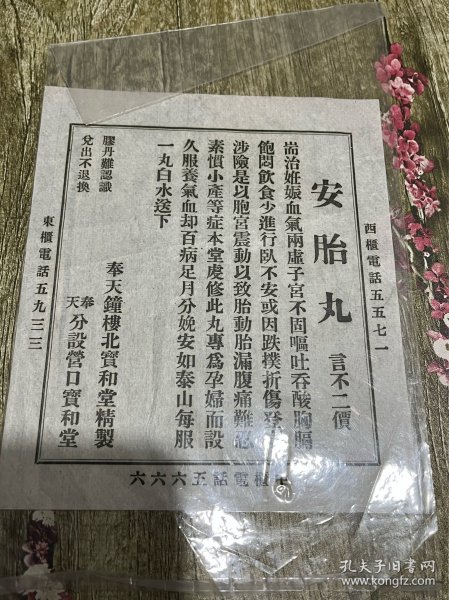 西櫃電話五五七一
安胎丸
言不二價
耑治妊娠血氣兩虛子宮不固嘔吐吞酸胸膈
飽悶飲食少進行臥不安或因跌撲折傷登高
涉險是以胞宮震動以致胎動胎漏腹痛難忍
素慣小產等症本堂虔修此丸專為孕婦而設
久服養氣血却百病足月分娩安如泰山每服
一丸白水送下
奉天鐘樓北寶和堂精製
奉天分設營口寶和堂
膠丹難認識
兌出不退換
東櫃電話五九三三
櫃電話五六六六
孔夫子旧书网
www.kongfz.com